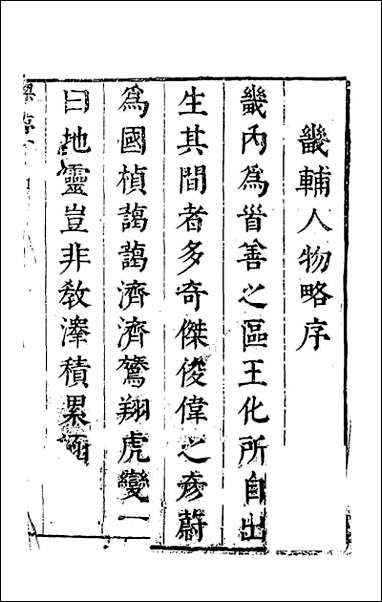 畿輔人物略序
畿內為首善之區王化所自出
生其間者多奇傑俊偉之彥蔚
為國楨藹藹濟濟鶱翔虎變一
曰地靈豈非教澤積累涵